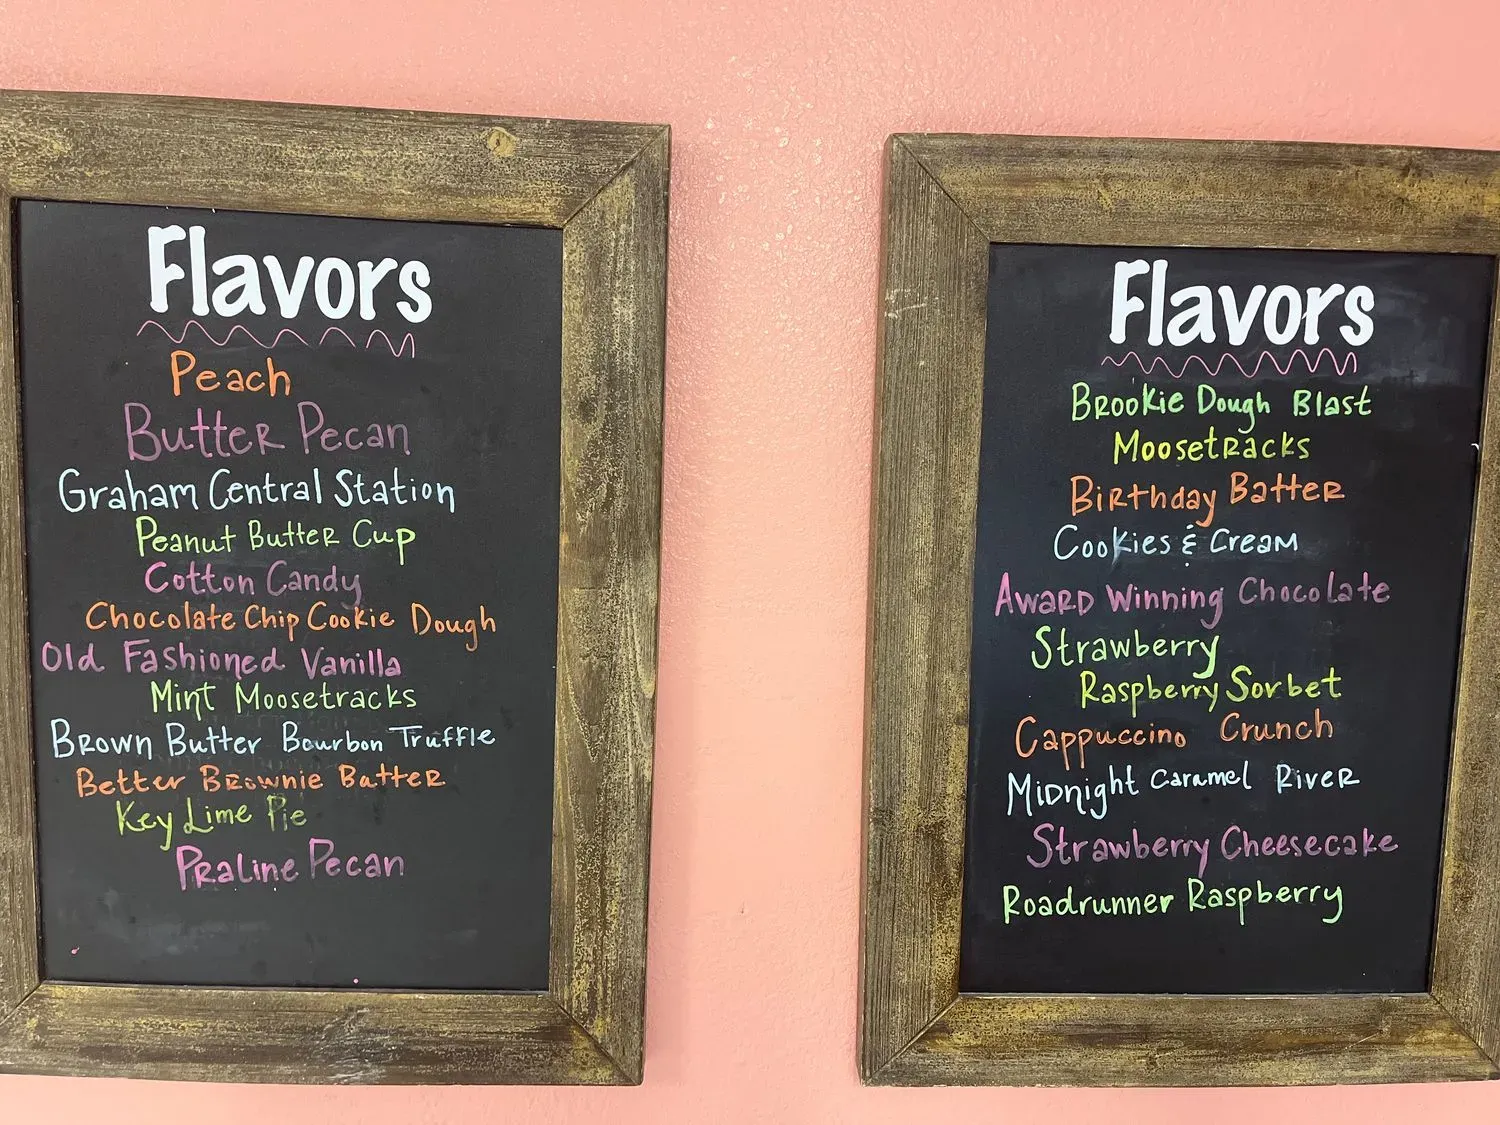 Flavors
Peach
Butter Pecan
Graham Central Station
Peanut Butter Cup
Cotton Candy
Chocolate Chip Cookie Dough
Old Fashioned Vanilla
Mint Moosetracks
Brown Butter Bourbon Truffle
Better Brownie Batter
Key Lime Pie
Praline Pecan
Flavors
Brookie Dough Blast
Moosetracks
Birthday Batter
Cookies & Cream
Award Winning Chocolate
Strawberry
Raspberry Sorbet
Cappuccino Crunch
Midnight Caramel River
Strawberry Cheesecake
Roadrunner Raspberry